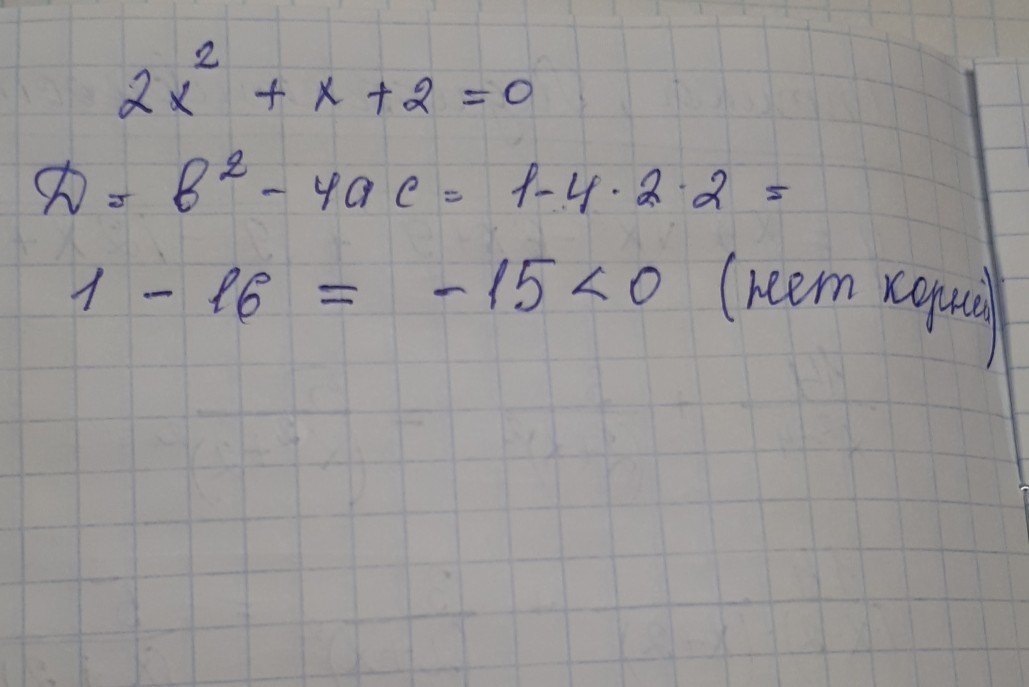 2x² + x + 2 = 0
Д = b² - 4ac = 1-4·2·2 =
1 - 16 = -15 < 0 (нет корней)